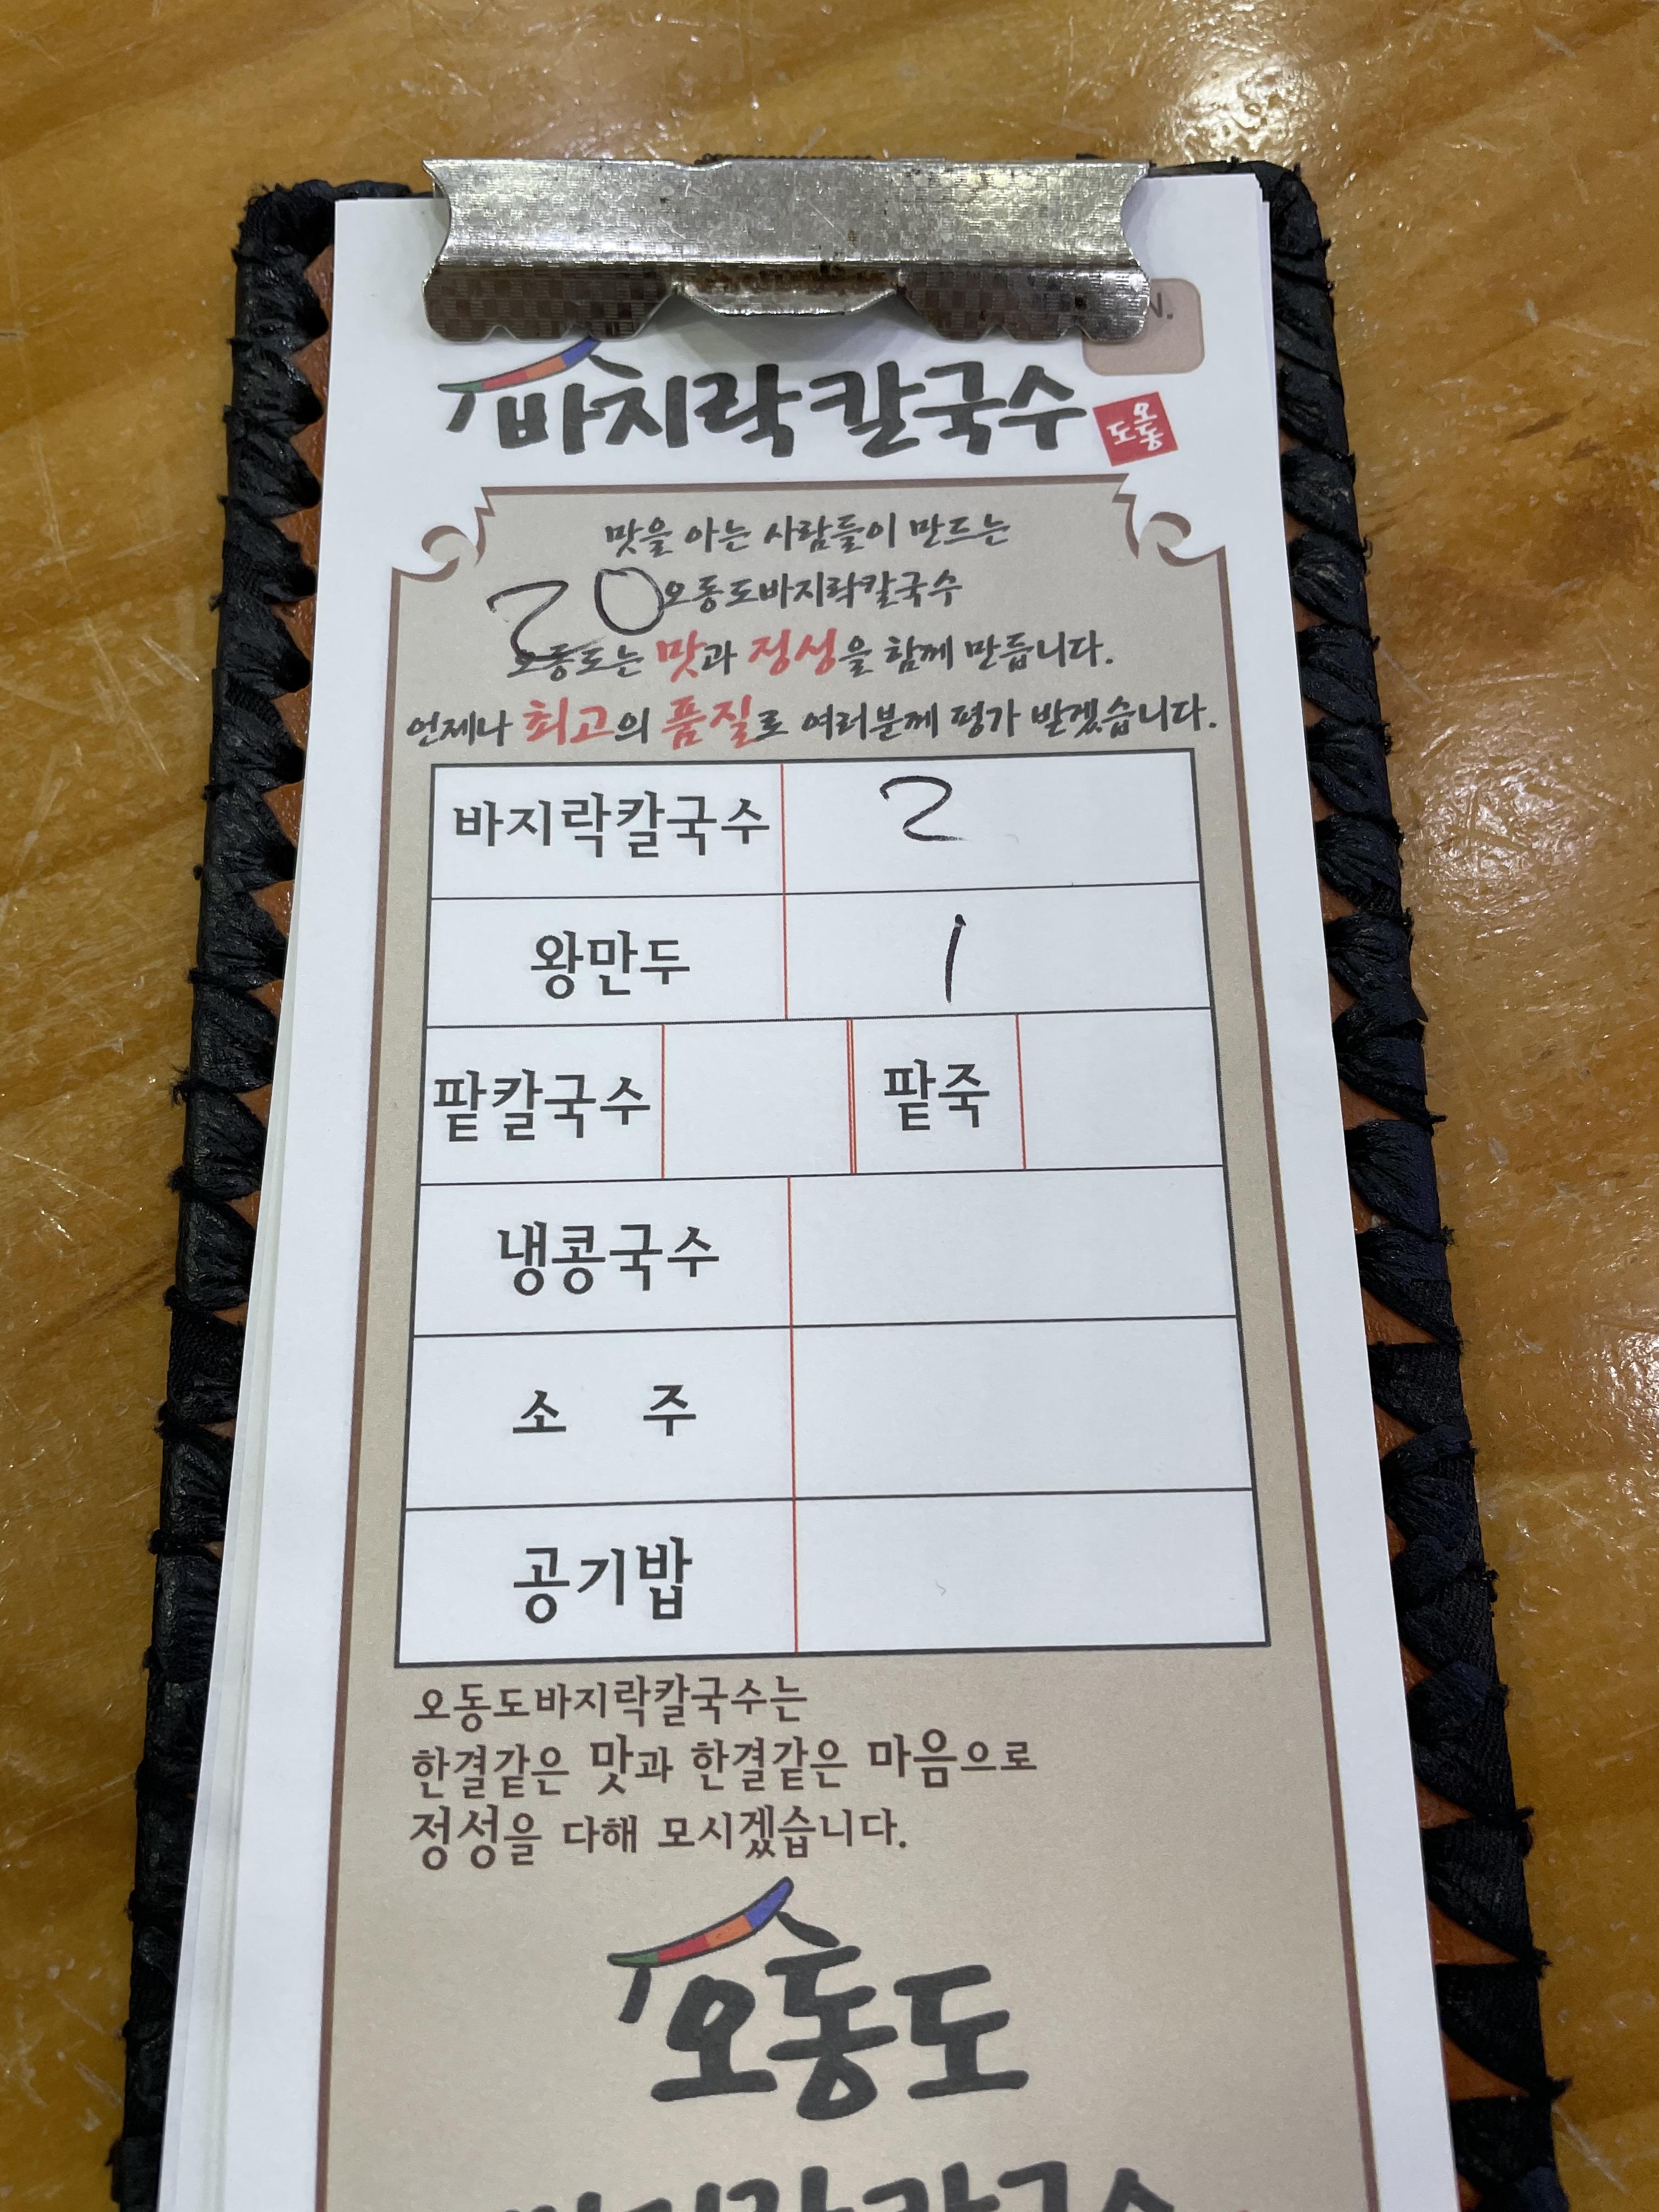 N.
바지락칼국수
오동도
맛을 아는 사람들이 만드는
20 오동도바지락칼국수
오동도는 맛과 정성을 함께 만듭니다.
언제나 최고의 품질로 여러분께 평가 받겠습니다.
바지락칼국수 2
왕만두 1
팥칼국수 팥죽
냉콩국수
소 주
공기밥
오동도바지락칼국수는
한결같은 맛과 한결같은 마음으로
정성을 다해 모시겠습니다.
오동도
바지락칼국수